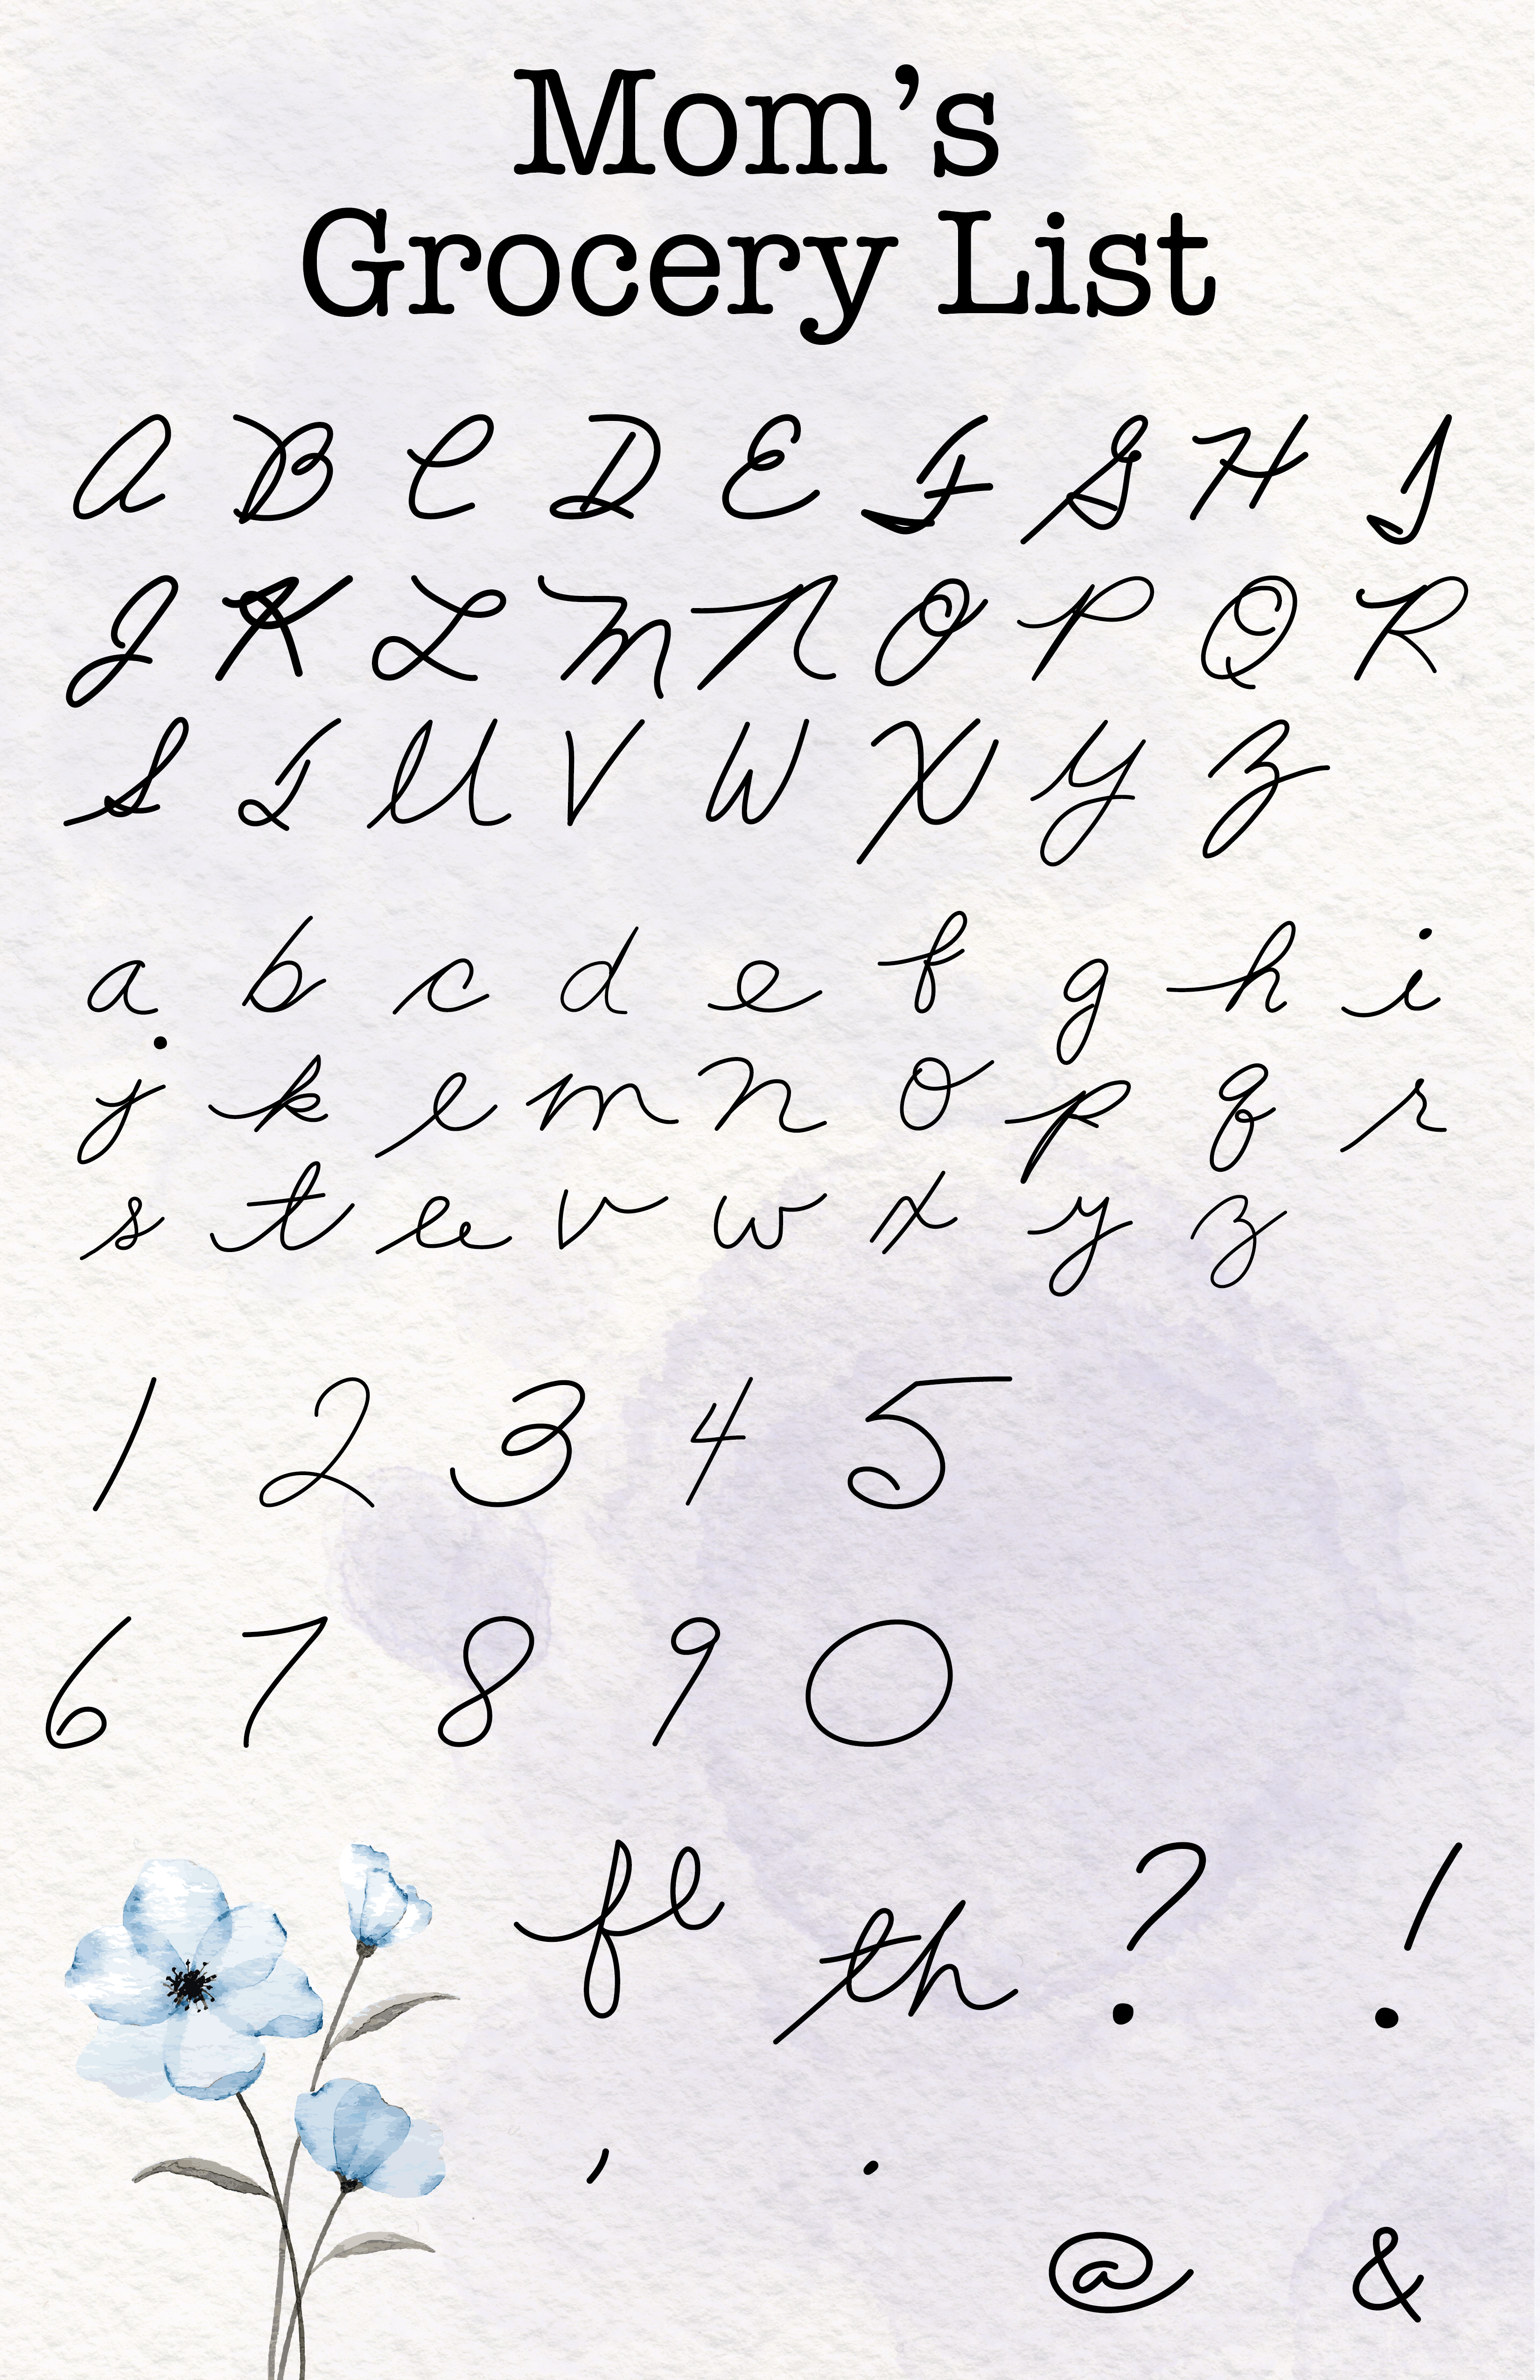 Mom’s
Grocery List
A B C D E F G H I
J K L M N O P Q R
S T U V W X Y Z
a b c d e f g h i
j k l m n o p q r
s t u v w x y z
1 2 3 4 5
6 7 8 9 0
fl th ? !
, .
@ &